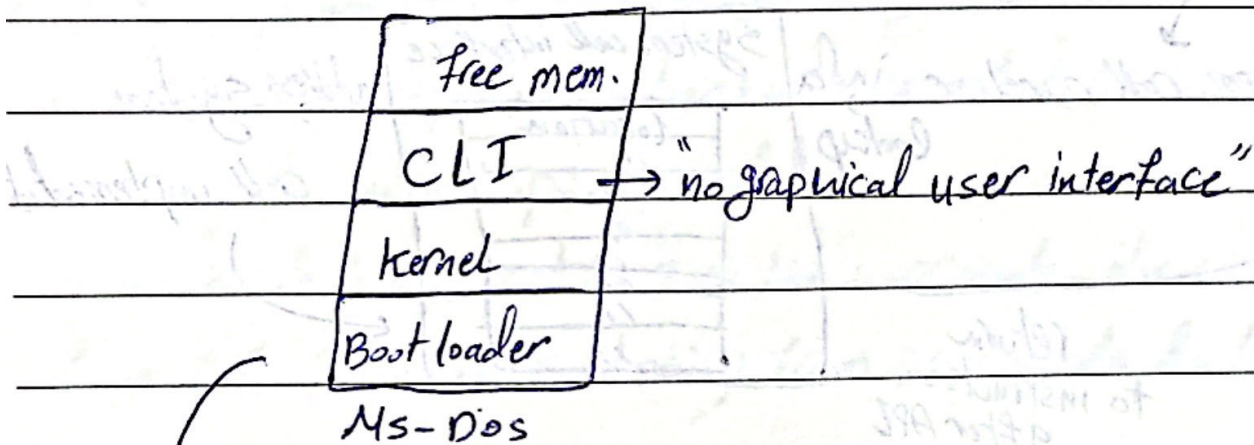 free mem.
CLI → "no graphical user interface"
Kernel
Boot loader
Ms-Dos